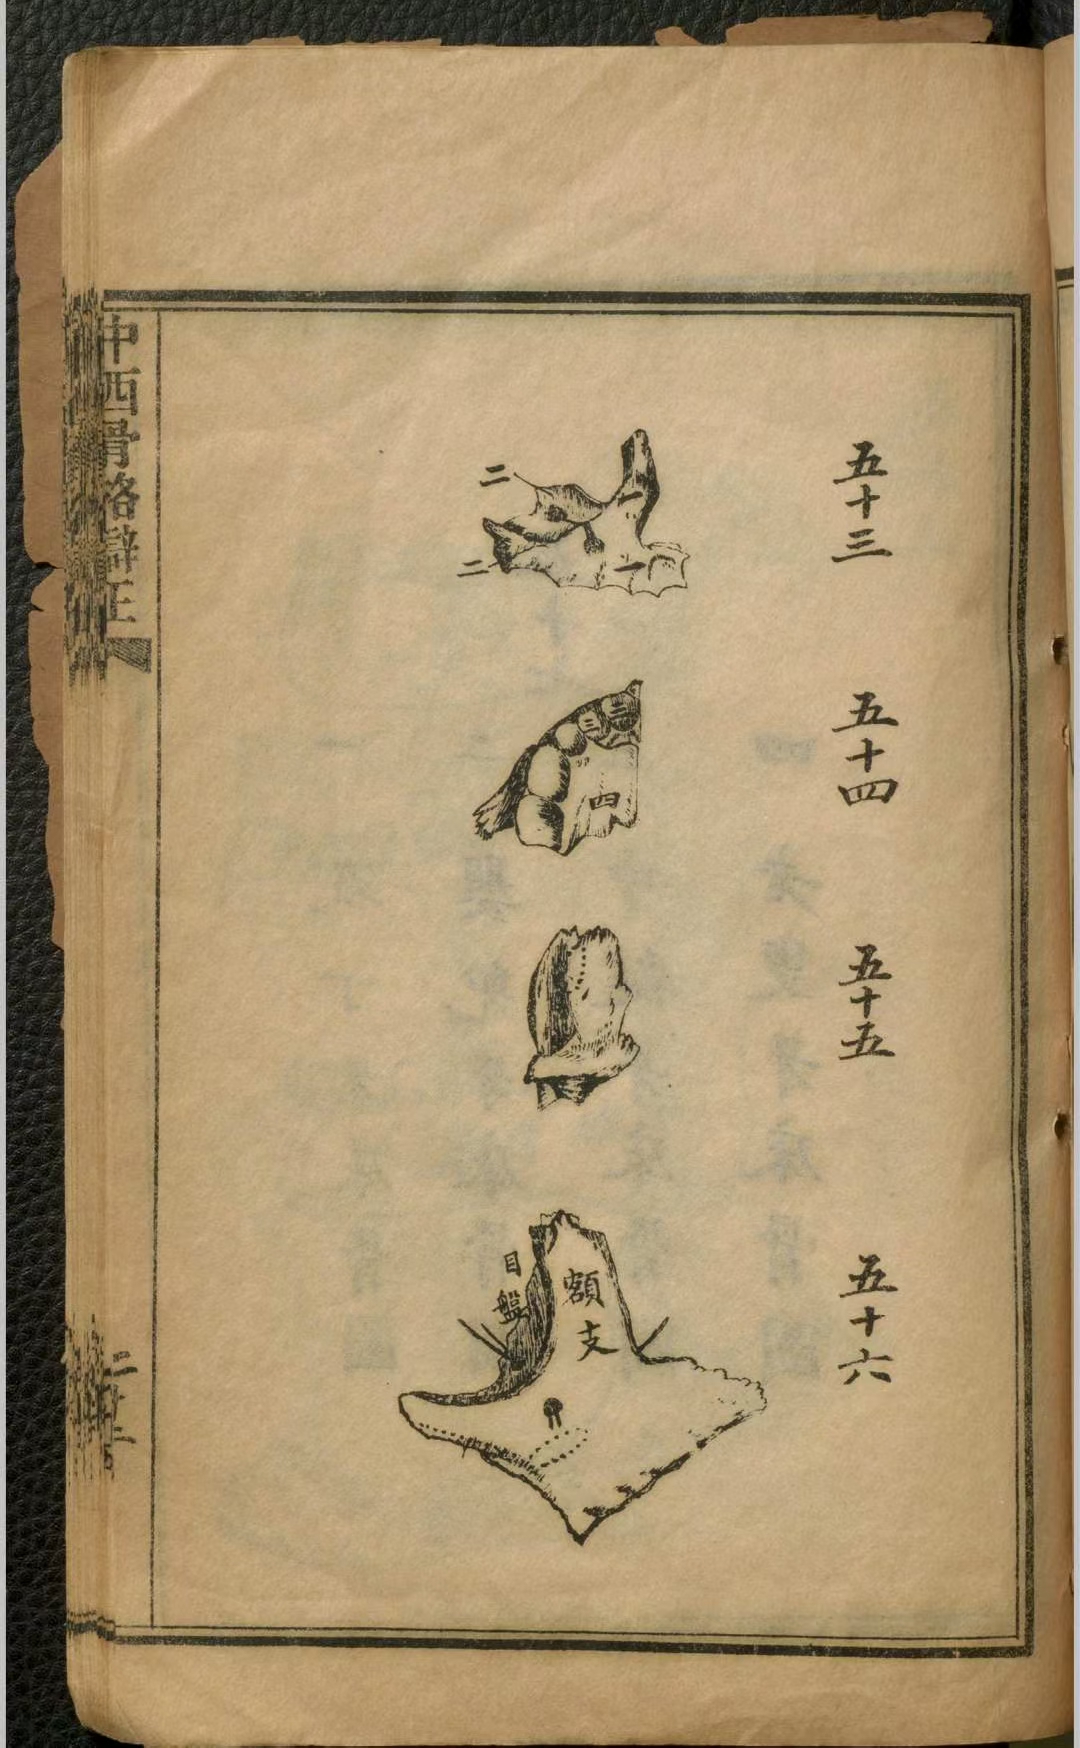 五十三
二
一
二
一
五十四
二
三
四
五十五
五十六
額支
目盤
中西骨格辯正